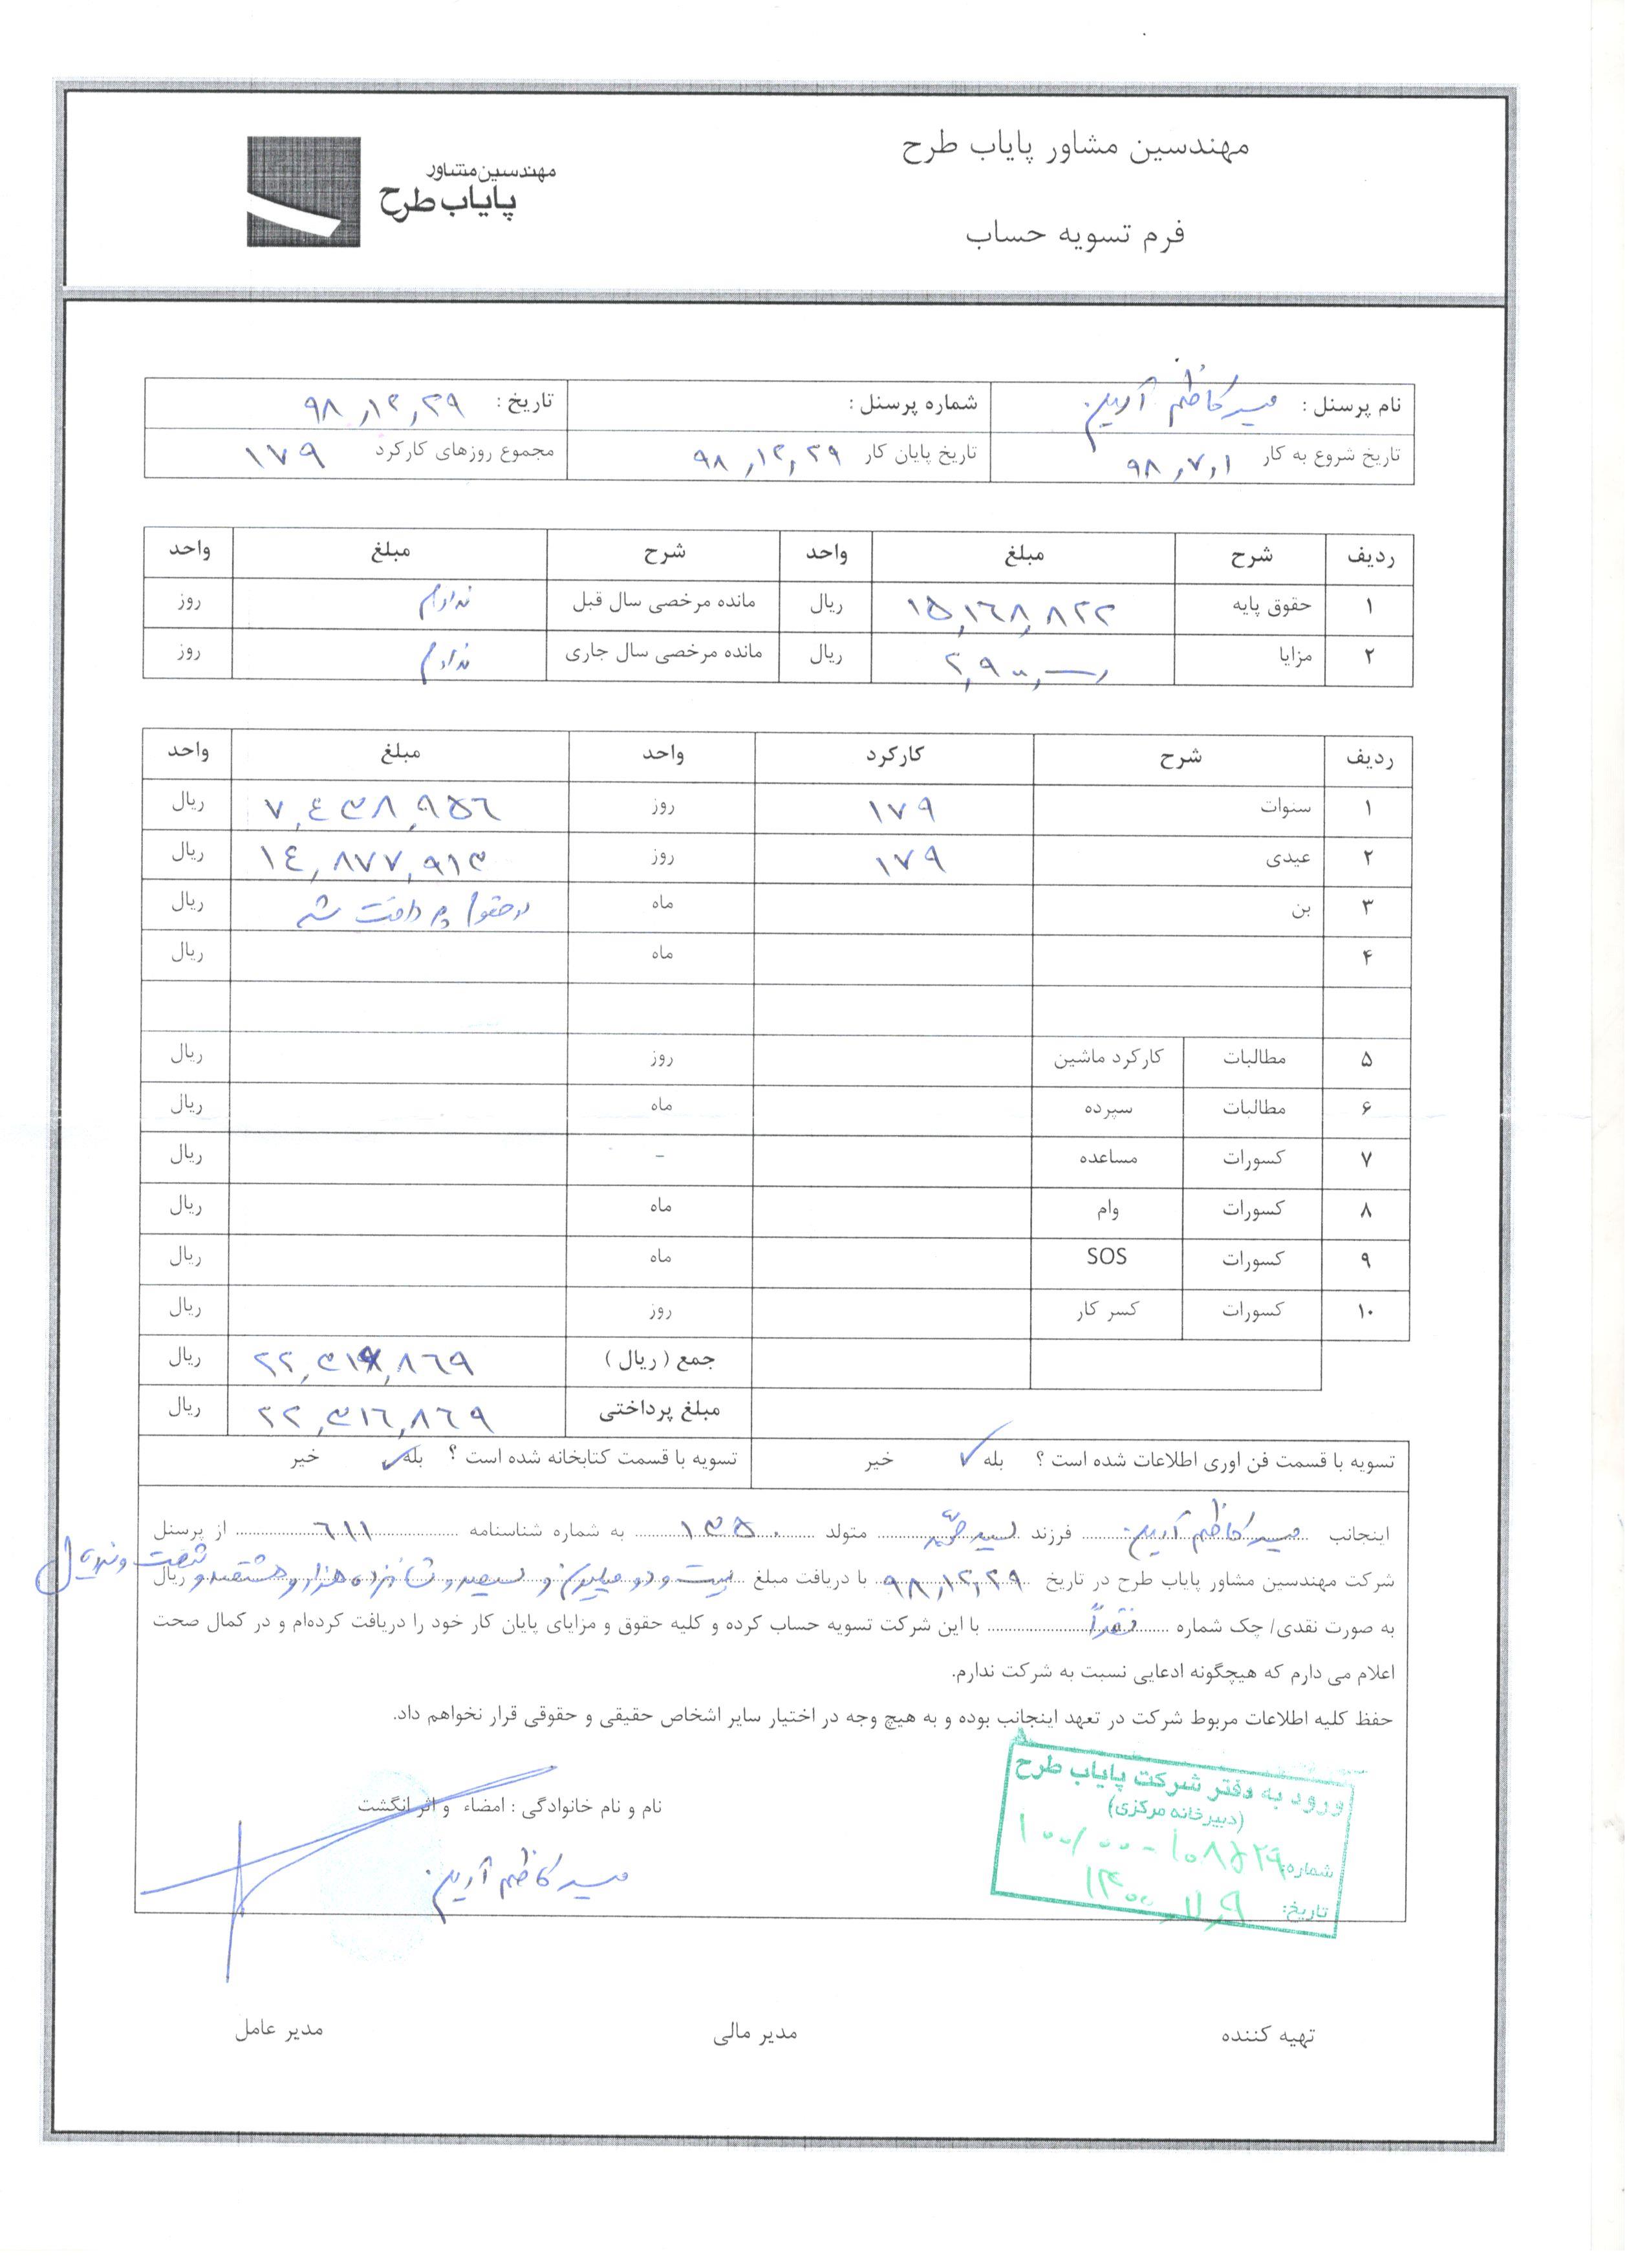 مهندسین مشاور پایاب طرح
مهندسین مشاور
پایاب طرح
فرم تسویه حساب
نام پرسنل : میر کاظم آرین شماره پرسنل : تاریخ : ۹۸,۱۲,۲۹
تاریخ شروع به کار ۹۸,۷,۱ تاریخ پایان کار ۹۸,۱۲,۲۹ مجموع روزهای کارکرد ۱۷۹
ردیف شرح مبلغ واحد شرح مبلغ واحد
۱ حقوق پایه ۱۵,۱۶۸,۸۲۲ ریال مانده مرخصی سال قبل ندارم روز
۲ مزایا ریال مانده مرخصی سال جاری ندارم روز
ردیف شرح کارکرد واحد مبلغ واحد
۱ سنوات ۱۷۹ روز ۷,۴۳۸,۹۵۶ ریال
۲ عیدی ۱۷۹ روز ۱۴,۸۷۷,۹۱۳ ریال
۳ بن ماه در حقوق پرداخت شد ریال
۴ ماه ریال
۵ مطالبات کارکرد ماشین روز ریال
۶ مطالبات سپرده ماه ریال
۷ کسورات مساعده - ریال
۸ کسورات وام ماه ریال
۹ کسورات SOS ماه ریال
۱۰ کسورات کسر کار روز ریال
جمع ( ریال ) ریال
مبلغ پرداختی ۲۲,۳۱۶,۸۶۹ ریال
تسویه با قسمت فن اوری اطلاعات شده است ؟ بله ✓ خیر تسویه با قسمت کتابخانه شده است ؟ بله ✓ خیر
اینجانب میر کاظم آرین فرزند متولد ۱۳۵۰ به شماره شناسنامه ۶۱۱ از پرسنل
شرکت مهندسین مشاور پایاب طرح در تاریخ ۹۸,۱۲,۲۹ با دریافت مبلغ بیست و دو میلیون و سیصد و شانزده هزار و هشتصد و شصت و نه ریال ریال
به صورت نقدی/ چک شماره نقداً با این شرکت تسویه حساب کرده و کلیه حقوق و مزایای پایان کار خود را دریافت کرده‌ام و در کمال صحت
اعلام می دارم که هیچگونه ادعایی نسبت به شرکت ندارم.
حفظ کلیه اطلاعات مربوط شرکت در تعهد اینجانب بوده و به هیچ وجه در اختیار سایر اشخاص حقیقی و حقوقی قرار نخواهم داد.
نام و نام خانوادگی : امضاء و اثر انگشت
میر کاظم آرین
ورود به دفتر شرکت پایاب طرح
(دبیرخانه مرکزی)
شماره:
تاریخ:
تهیه کننده مدیر مالی مدیر عامل